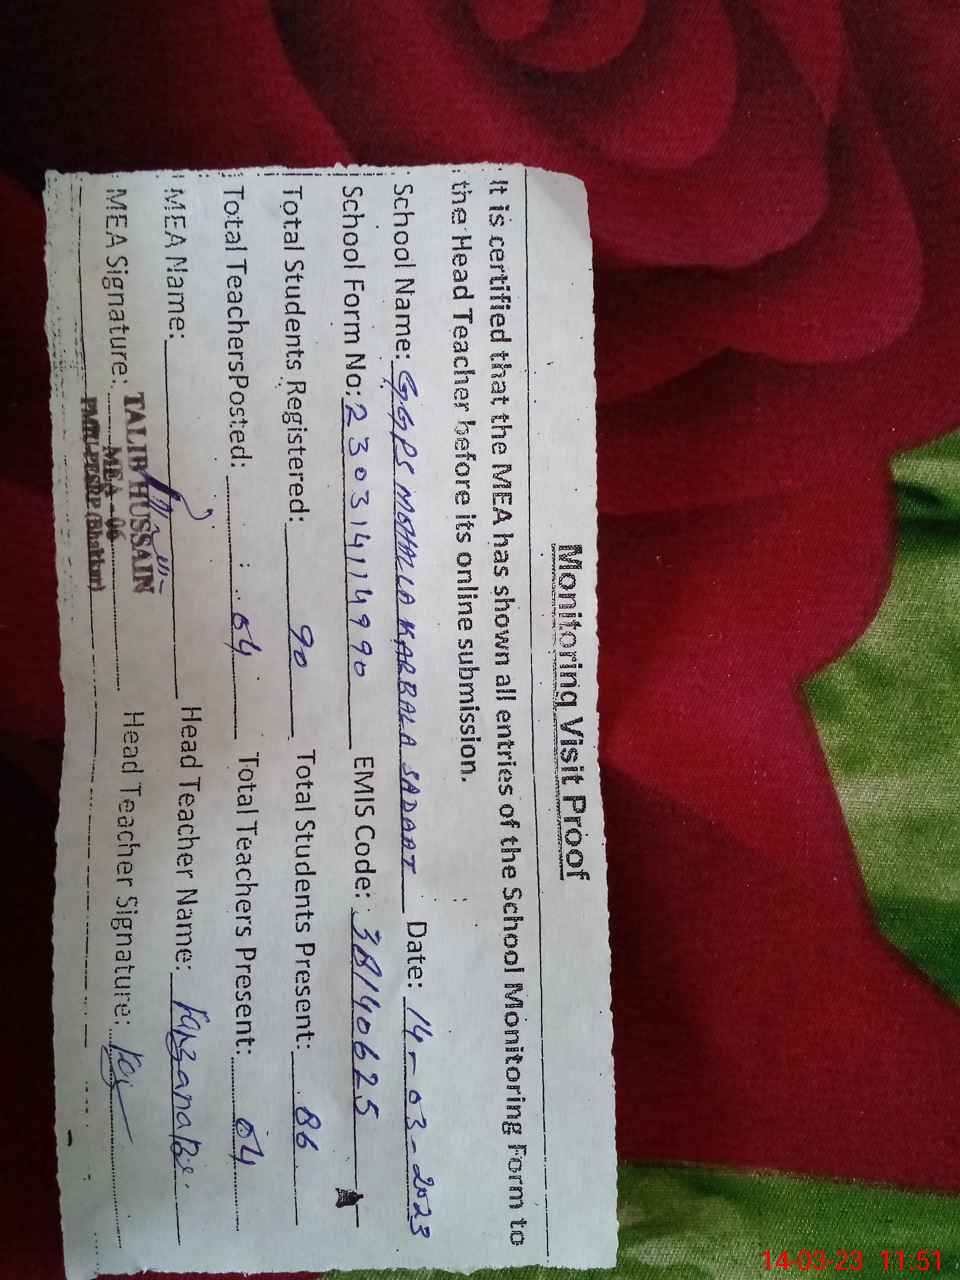 Monitoring Visit Proof
It is certified that the MEA has shown all entries of the School Monitoring Form to
the Head Teacher before its online submission.
School Name: GGPS MOHALLA KARBALA SADAAT Date: 14-03-2023
School Form No: 230314114990 EMIS Code: 38140625
Total Students Registered: 90 Total Students Present: 86
Total TeachersPosted: 04 Total Teachers Present: 04
MEA Name: Head Teacher Name: Farzana Bi
MEA Signature: Head Teacher Signature:
TALIB HUSSAIN
MEA - 06
14-03-23 11:51